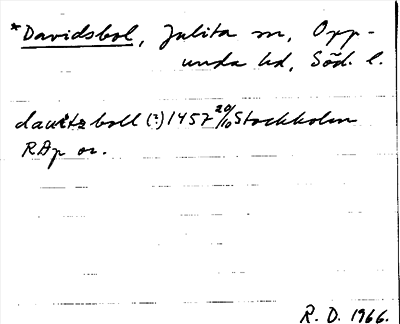 *Davidsbol, Julita sn, Opp-
unda hd, Söd. l.
dauitzboll (?) 1457 20/10 Stockholm
RAp or.
R. D. 1966.